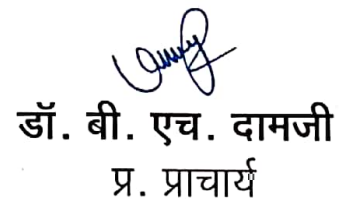 डॉ. बी. एच. दामजी
प्र. प्राचार्य